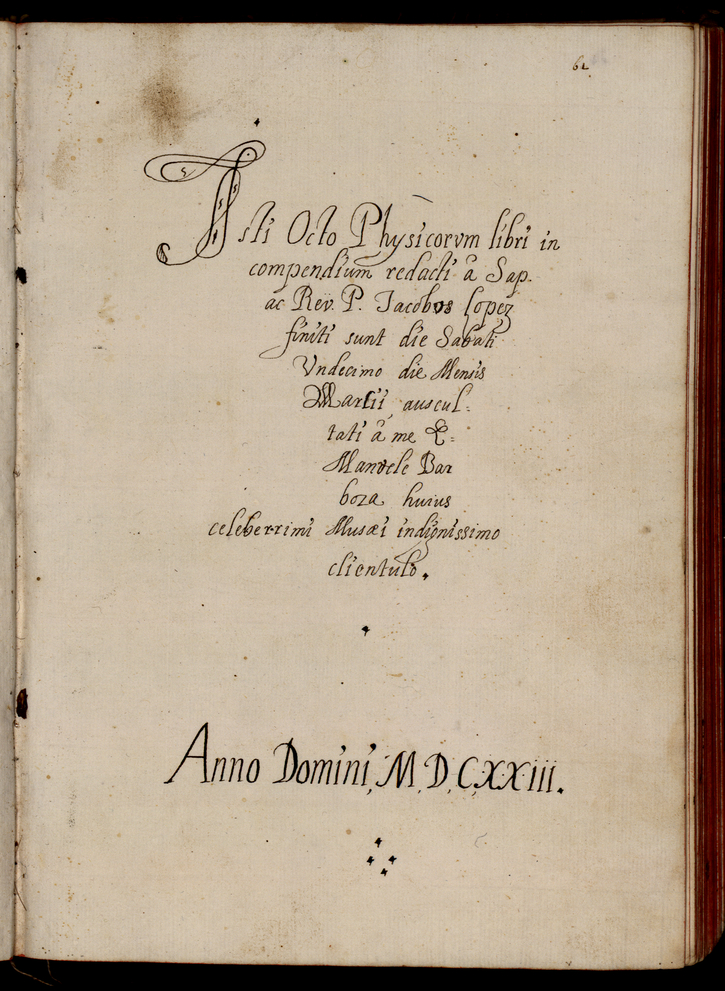 61
Isti Octo Physicorum libri in
compendium redacti â Sap.
ac Rev. P. Jacobus Lopez
finiti sunt die Sabati
Undecimo die Mensis
Martii, auscul-
tati â me E-
Manuele Bar
boza huius
celeberrimi Musæi indignissimo
clientulo.
Anno Domini, M, D, C, XXIII.